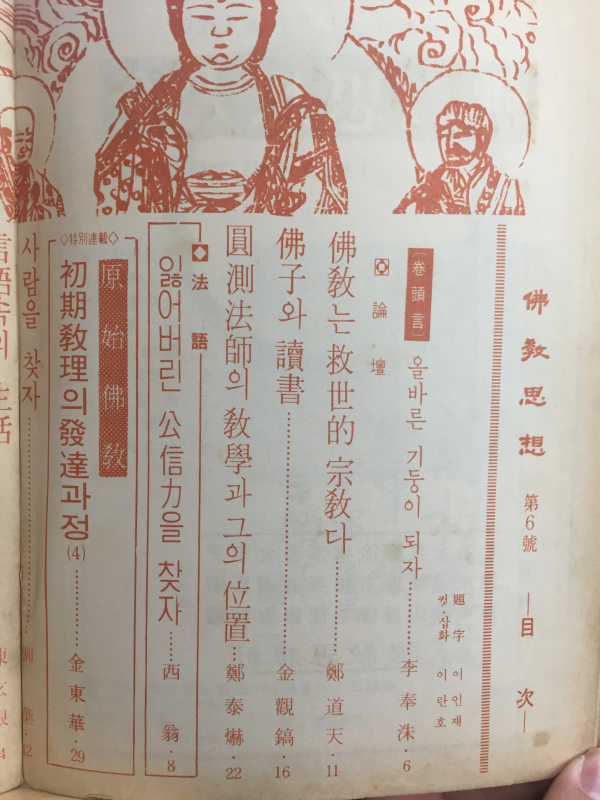 佛敎思想 第6號 —目 次—
題字 이인재
컷·삽화 이란호
[卷頭言] 올바른 기둥이 되자……李奉洙·6
論壇
佛敎는 救世的 宗敎다……鄭道天·11
佛子와 讀書……金觀鎬·16
圓測法師의 敎學과 그의 位置…鄭泰爀·22
◆法語
잃어버린 公信力을 찾자……西翁·8
◇特別連載◇
原始佛敎
初期敎理의 發達과정(4)……金東華·29
사람을 찾자
葉·42